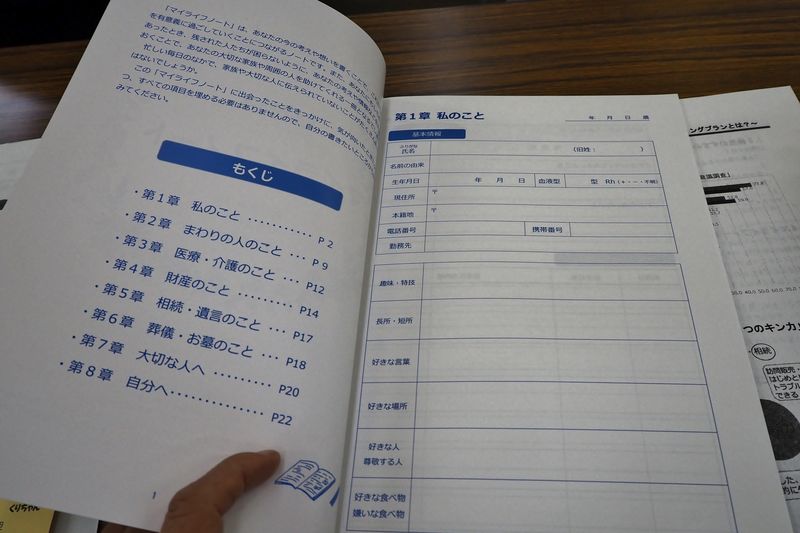 「マイライフノート」は、あなたの今の考えや想いを書くことで、
を有意義に過ごしていくことにつながるノートです。また、あなたに
あったとき、残された人たちが困らないように、あなたの考えや情報を
おくことで、あなたの大切な家族や周囲の人を助けてくれる一冊と
忙しい毎日のなかで、家族や大切な人に伝えられていないことがたくさん
はないでしょうか。
この「マイライフノート」に出会ったことをきっかけに、気が向いたとき
つ、すべての項目を埋める必要はありませんので、自分の書きたいところから
みてください。
もくじ
・第1章 私のこと ············ P 2
・第2章 まわりの人のこと ··· P 9
・第3章 医療・介護のこと ··· P12
・第4章 財産のこと ········· P14
・第5章 相続・遺言のこと ··· P17
・第6章 葬儀・お墓のこと ··· P18
・第7章 大切な人へ ·········· P20
・第8章 自分へ··············· P22
1
第1章 私のこと
年 月 日 曜
基本情報
ふりがな
氏名 (旧姓: )
名前の由来
生年月日 年 月 日 血液型 型 Rh (+・-・不明)
現住所 〒
本籍地 〒
電話番号 携帯番号
勤務先
趣味・特技
長所・短所
好きな言葉
好きな場所
好きな人
尊敬する人
好きな食べ物
嫌いな食べ物
ングプランとは?～
意識調査」
つのキンカ
・相続
訪問販売・
はじめと
トラブル
できる
くりちゃん